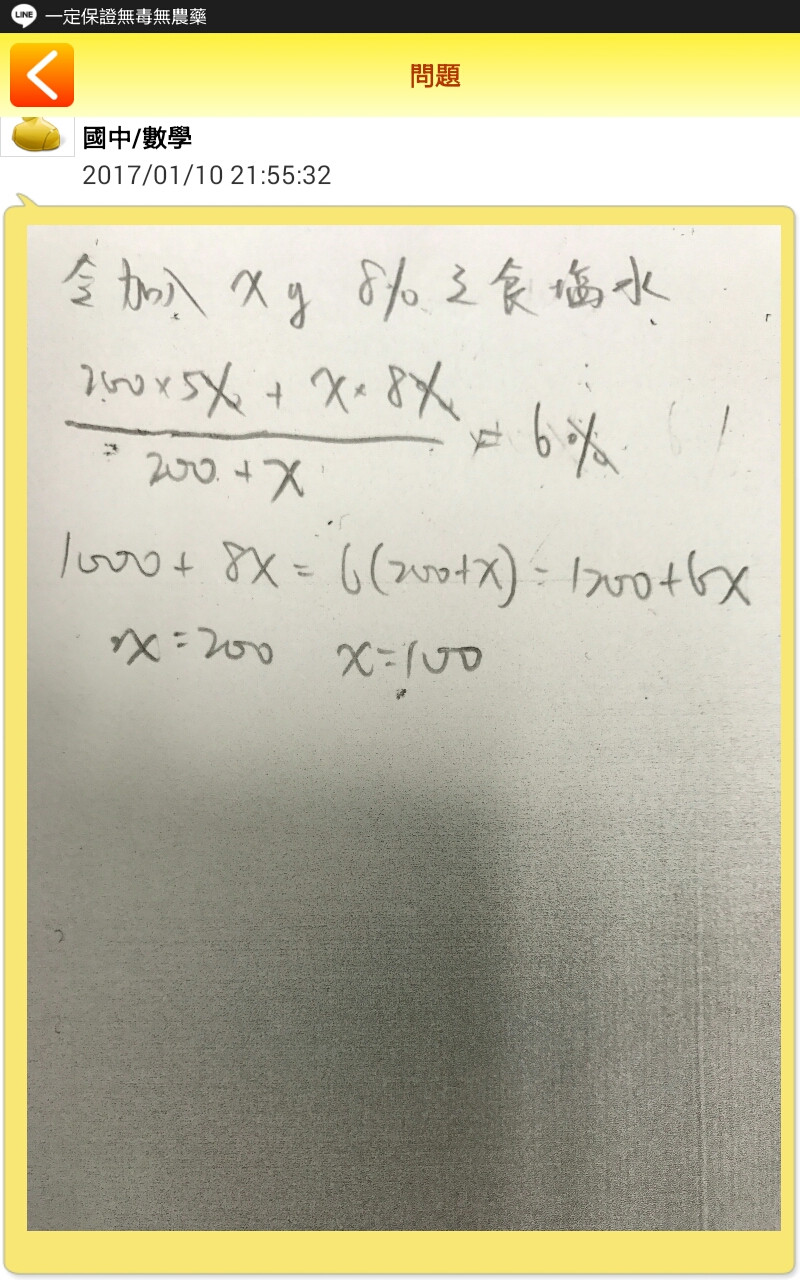 LINE 一定保證無毒無農藥
問題
國中/數學
2017/01/10 21:55:32
令加入 x g 8% 之食塩水
200×5% + x×8%
200 + x
= 6%
1000 + 8x = 6(200+x) = 1200+6x
2x=200 x=100